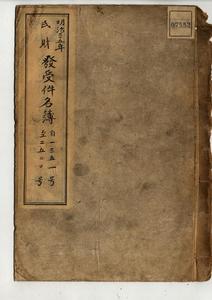 明治三五年
民財 發受件名簿
自一三五一号
至二五〇〇号
07553